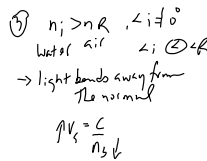 ③ nᵢ > nR , ∠i ≠ 0°
water air ∠i < ∠R
→ light bends away from
the normal
↑v₅ = c / n₅ ↓